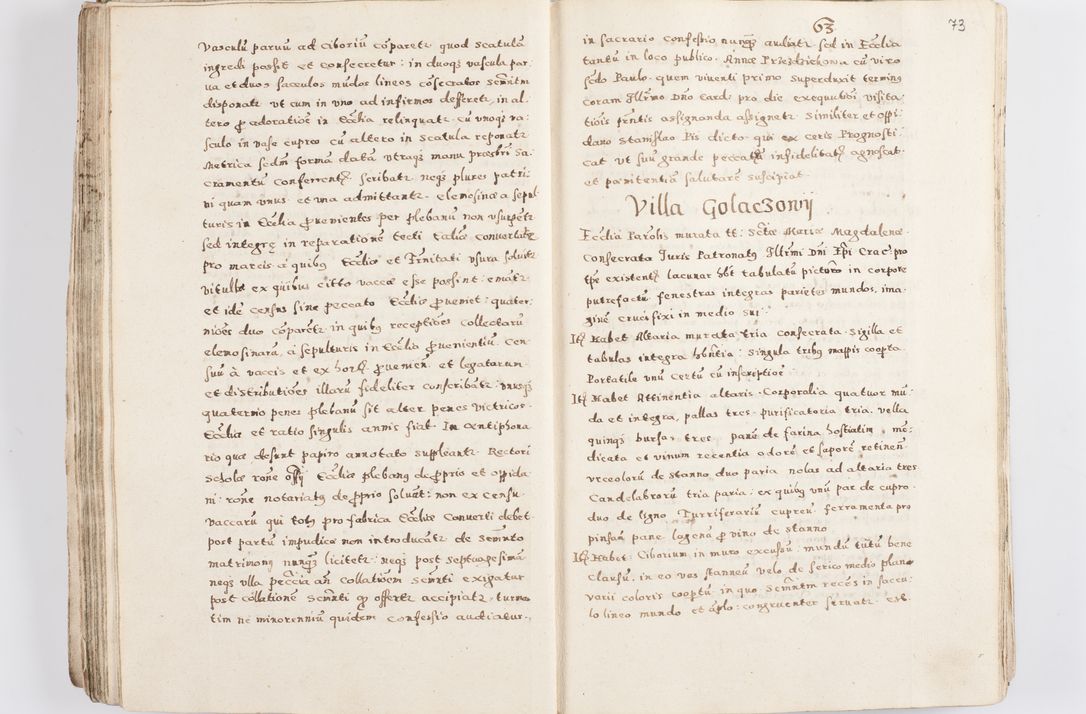 vasculu paruu ad ciboriu coparetr quod scatula
ingredi possit et consecretur: in duoqȝ vascula par:
ua et duos sacculos mudos lineos cosecratos semntm
disponatr vt cum in vno ad infirmos defferetr in al:
tero ꝓ adoratioe in Ecclia relinquatr cu vnoqȝ va:
sculo in vase cupreo cu altero in scatula reponatr
Metrica sedm forma data vtraqȝ manu praesbri Sa:
cramentu conferentȝ scribatr neqȝ plures patri:
ni quam vnus et vna admittantr. elemosinae a sepul:
turis in Ecclia ꝓuenientes per plebanu non vsurpetr
sed integre in reparatione tecti talis conuertatr
pro marcis a quibȝ Ecclia et Trinitati vsura soluitr
vitulle ex quibus citto vacce esse possint: ematr
et ide census sine peccato Ecclie ꝓueniet: quater:
nioes duo coparetr in quibȝ receptiões collectaru
elemosinaru, a sepulturis in Ecclia ꝓuenientiu Cen:
suu à vaccis et ex hortȝ ꝓuenien et legatarum
et distributiões illaru fideliter conscribatr: vnusqȝ
quaternio penes plebanu sit alter penes victricos
Ecclie et ratio singulis annis fiat In antiphona
rio quae desunt papiro annotato suppleantr Rectori
Scholae roñe offy Ecclie plebanȝ de ꝓprio et oppida
ni: roñe notariatȝ de ꝓprio soluat: non ex censu
vaccaru qui totȝ pro fabrica Ecclie conuerti debet.
post partu impudicae non introducatr de Semnto
matrimony nunqȝ licitetr neqȝ post septuagesima
neqȝ vlla peccia añ collatiõem semnti exigatur
post collatione semnti qȝ offertr accipiatr turma
tim ne minorenniu quidem confessio audiatur.,
63
73
in sacrario confessio nunqȝ audiatr sed in Ecclia
tantu in loco publico. Annae cu viro
sedo Paulo quem viuenti primo superduxit terminȝ
coram Illrmo Dño Card: pro die exequutiõi visita
tiõis pntis assignanda assignetr Similiter et oppi
dano Stanislao Pis dicto qui ex ceris Prognosti:
cat vt suu grande peccatȝ infidelitatȝ agnoscat
et paenitentia salutare suscipiat
Villa Golaczowij
Ecclia Parolis murata tt: Sctae Mariae Magdalenae
Consecrata Juris Patronatȝ Illrmi Dñi Epi Crac: pro
tpe existentȝ lacunar hbt tabulatu picturo in corpore
putrefactu fenestras integras parietes mundos, ima:
gine Crucifixi in medio sui.
Itȝ Habet Altaria murata tria consecrata. Sigilla et
tabulas integra hbntia: Singula tribȝ mappis coopta.
Portatile vnu Certu cu inscriptioe
Itȝ Habet Attinentia altaris. Corporalia quatuor mu:
da et integra, pallas tres. purificatoria tria. vella
quinqȝ bursas tres pane de farina hostiatim me:
dicata et vinum recentia odore et sapore retinen
vrceoloru de stanno duo paria nolas ad altaria tres
Candelabroru tria paria: ex quibȝ vnu par de cupro.
duo de ligno Turriferariu cupreu ferramenta pro
pinsan pane lagena ꝓ vino de stanno.
Itȝ Habet: Ciborium in muro excussu: mundu tutu bene
Clausu, in eo vas stanneu velo de serico medio plano
varii coloris cooptu in quo Semntm recens in saccu:
lo lineo mundo et aplo: congruenter seruatr. Est